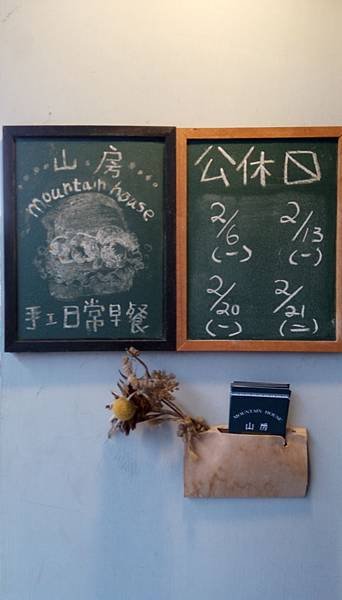 山房
mountain house
手工日常早餐
公休日
2/6
(一)
2/13
(一)
2/20
(一)
2/21
(二)
MOUNTAIN HOUSE
山房